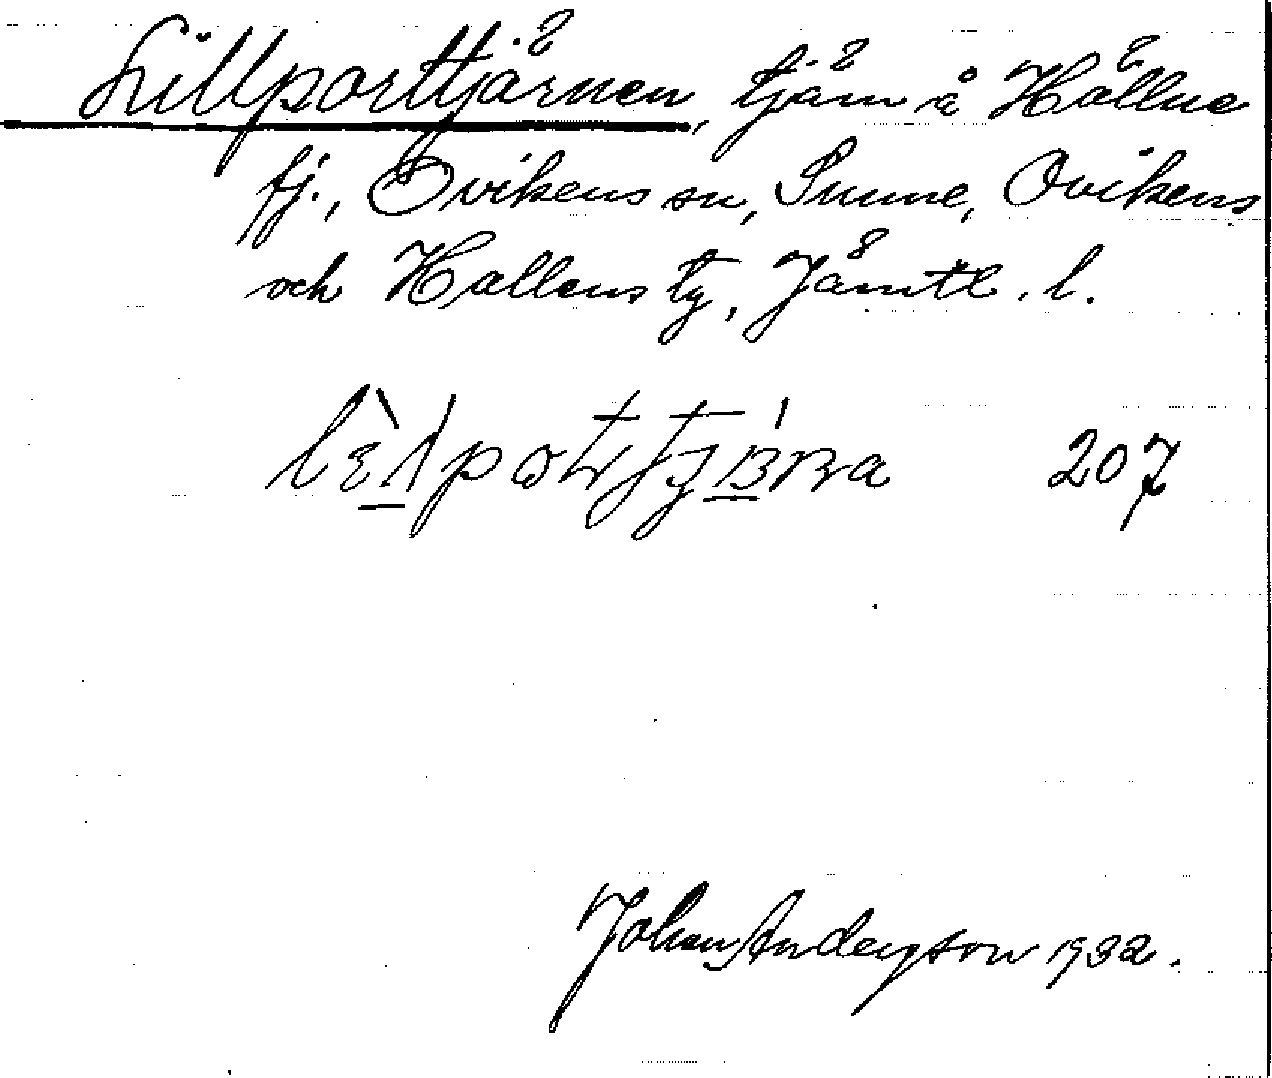 Lillporttjärnen, tjärn å Hållne
fj., Ovikens sn, Sunne, Ovikens
och Hallens tg, Jämtl. l.
207
Johan Anderson 1932.